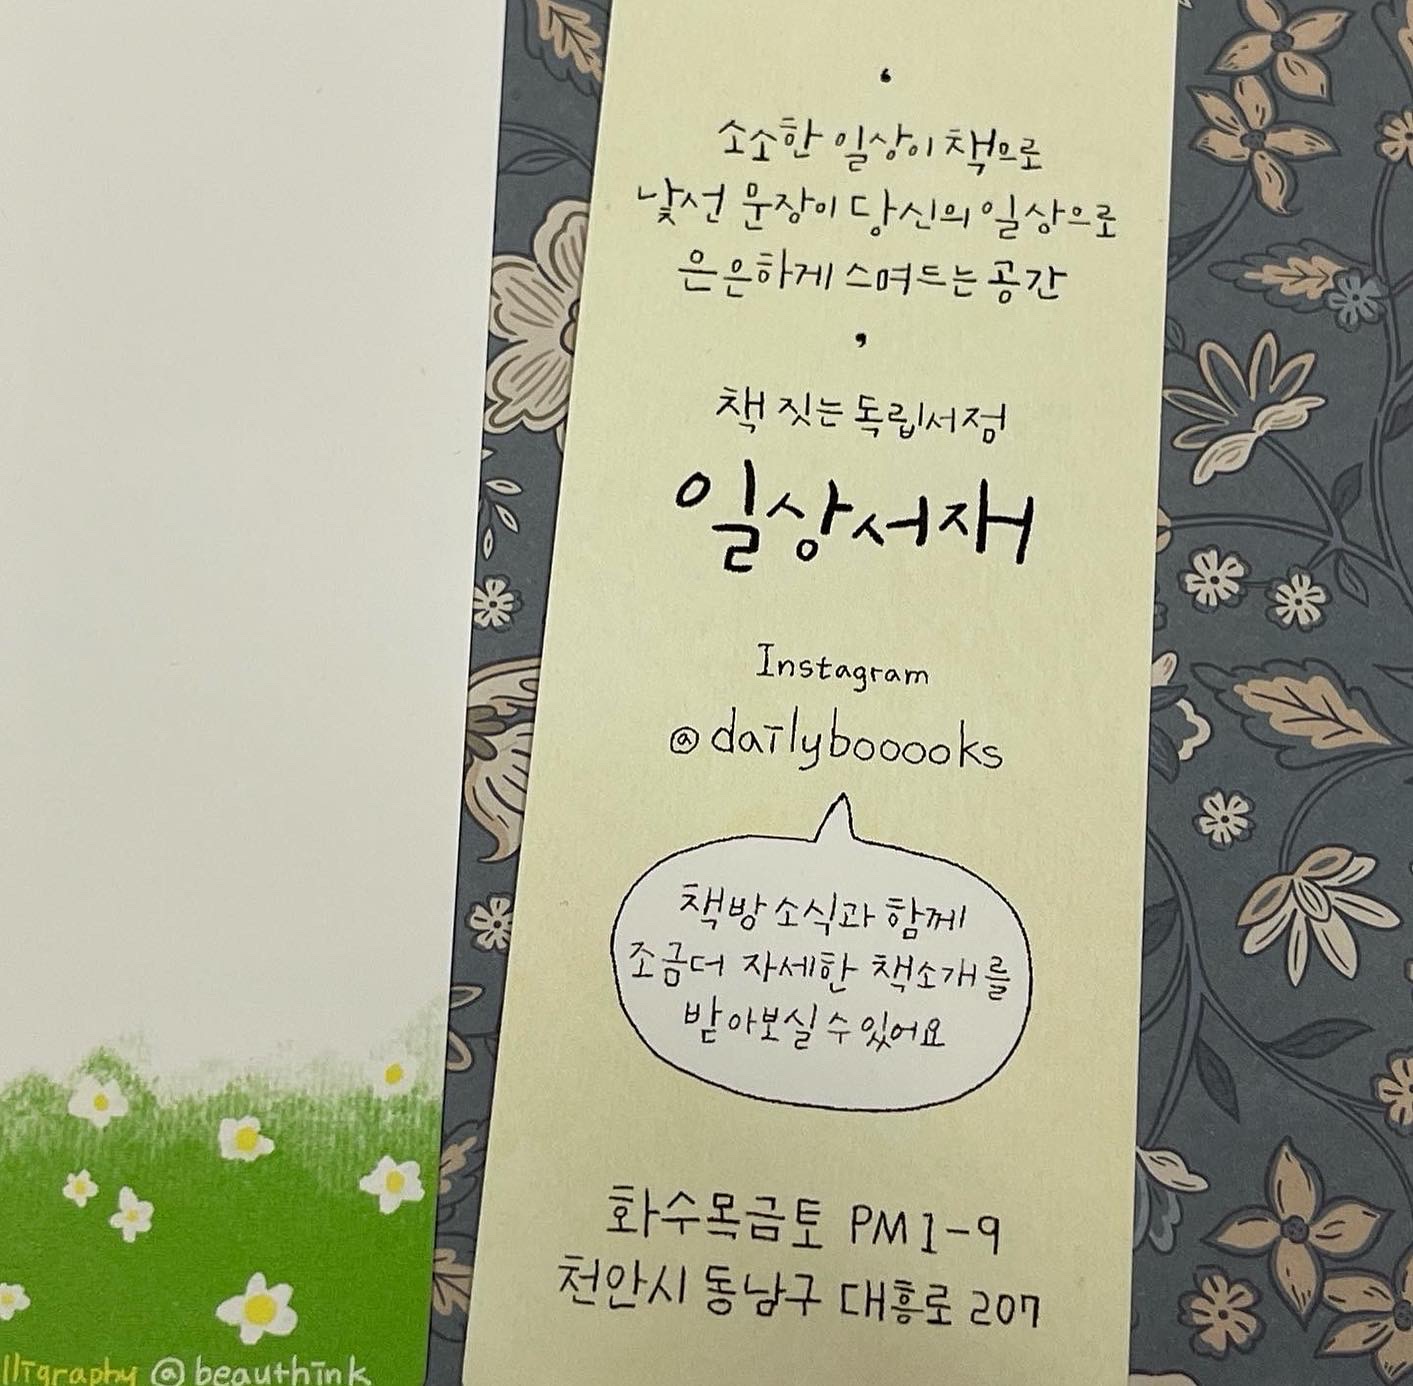 ‘
소소한 일상이 책으로
낯선 문장이 당신의 일상으로
은은하게 스며드는 공간
’
책 짓는 독립서점
일상서재
Instagram
@dailybooooks
책방 소식과 함께
조금더 자세한 책소개를
받아보실 수 있어요
화수목금토 PM 1-9
천안시 동남구 대흥로 207
lligraphy @beauthink